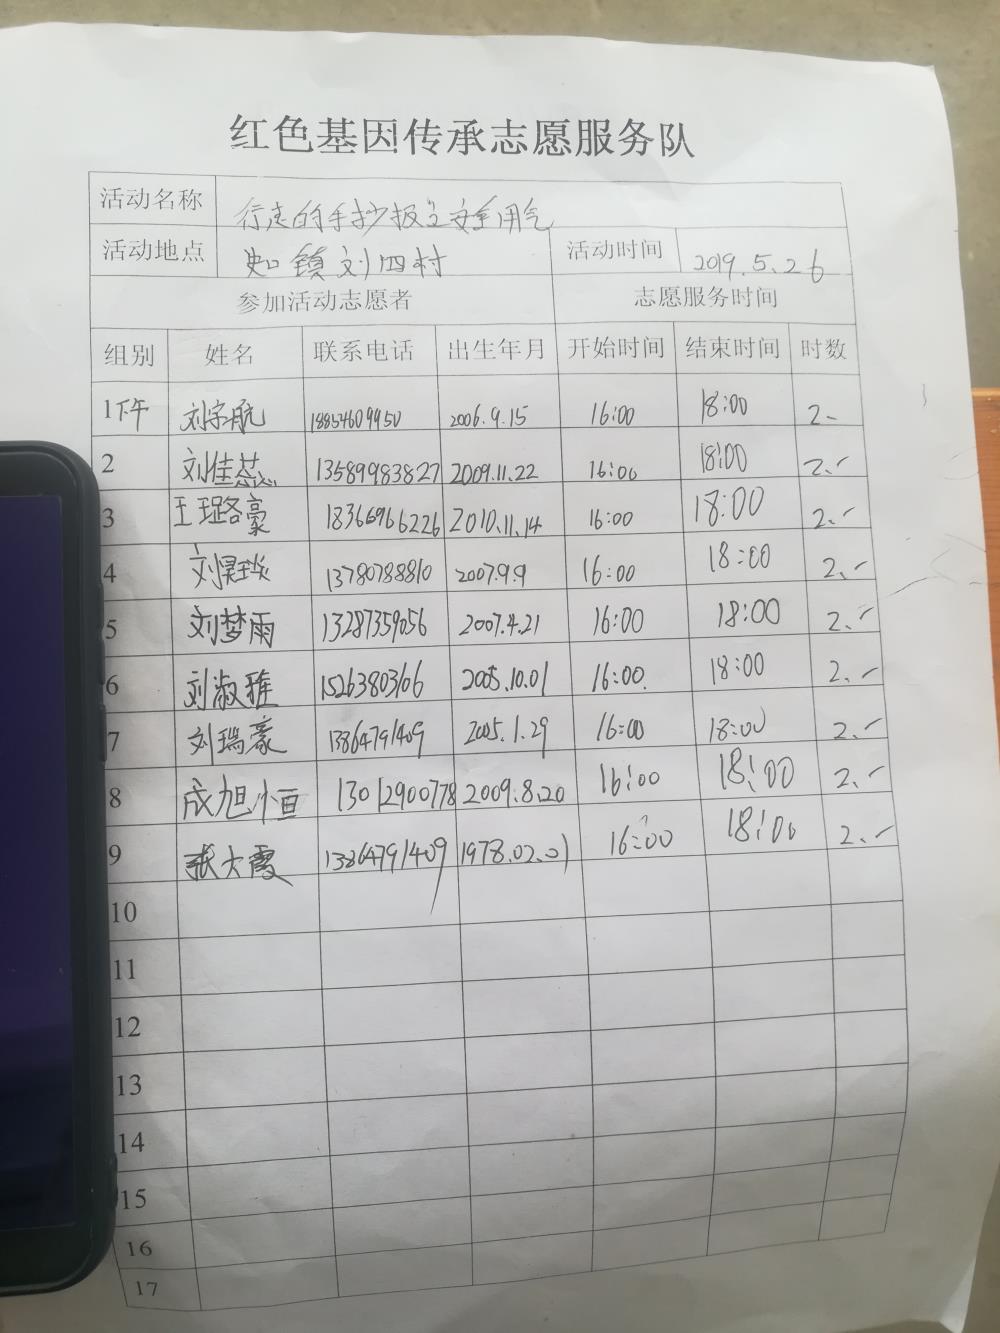 红色基因传承志愿服务队
活动名称 行走的手抄报之安全用气
活动地点 镇刘四村 活动时间 2019.5.26
参加活动志愿者 志愿服务时间
组别 姓名 联系电话 出生年月 开始时间 结束时间 时数
1下午 刘宇航 18854609950 2006.9.15 16:00 18:00 2
2 刘佳蕊 13589983827 2009.11.22 16:00 18:00 2
3 王璐豪 18366966226 2010.11.14 16:00 18:00 2
4 刘昊琰 13780788810 2007.9.9 16:00 18:00 2
5 刘梦雨 13287359056 2007.4.21 16:00 18:00 2
6 刘淑雅 15263803166 2005.10.01 16:00 18:00 2
7 刘瑞豪 13864791409 2005.1.29 16:00 18:00 2
8 成旭恒 13012900778 2009.8.20 16:00 18:00 2
9 张大霞 13864791409 1978.02.01 16:00 18:00 2
10
11
12
13
14
15
16
17